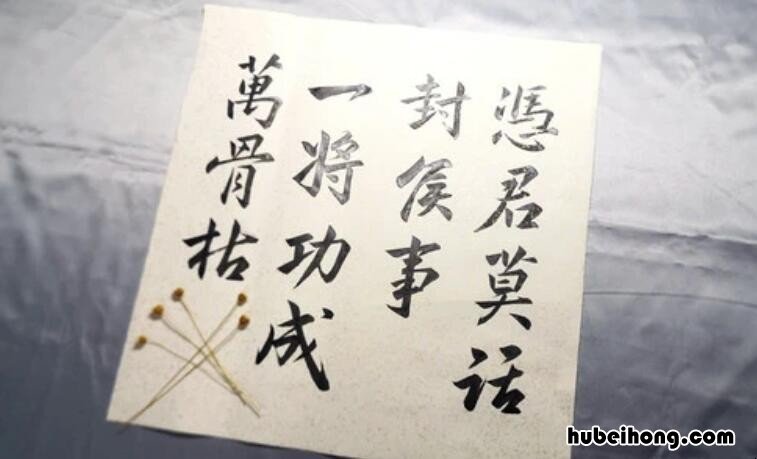 憑君莫话
封侯事
一将功成
萬骨枯
hubeihong.com